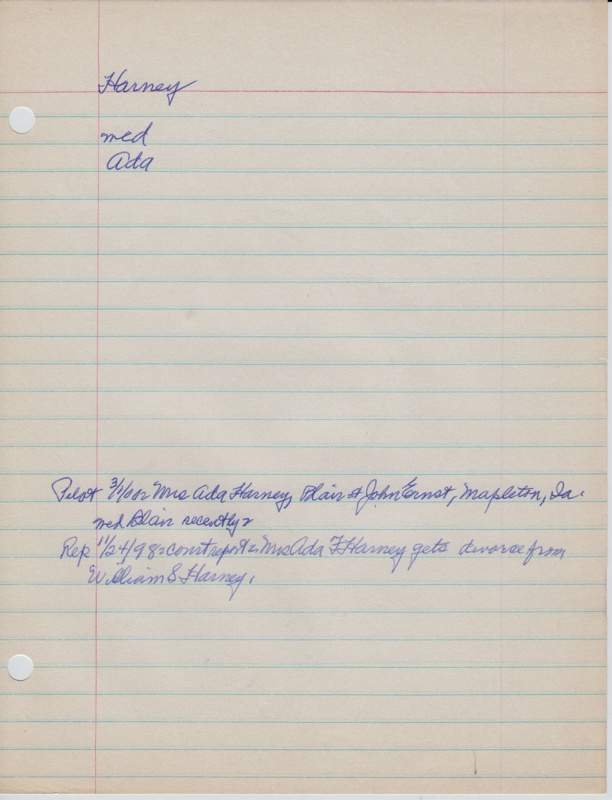 Harney
med
Ada
Pilot 3/1/00= Mrs Ada Harney, Blair & John Ernst, Mapleton, Ia.
med Blair recently=
Rep 11/24/98= court report= Mrs Ada F Harney gets divorce from
William S Harney.